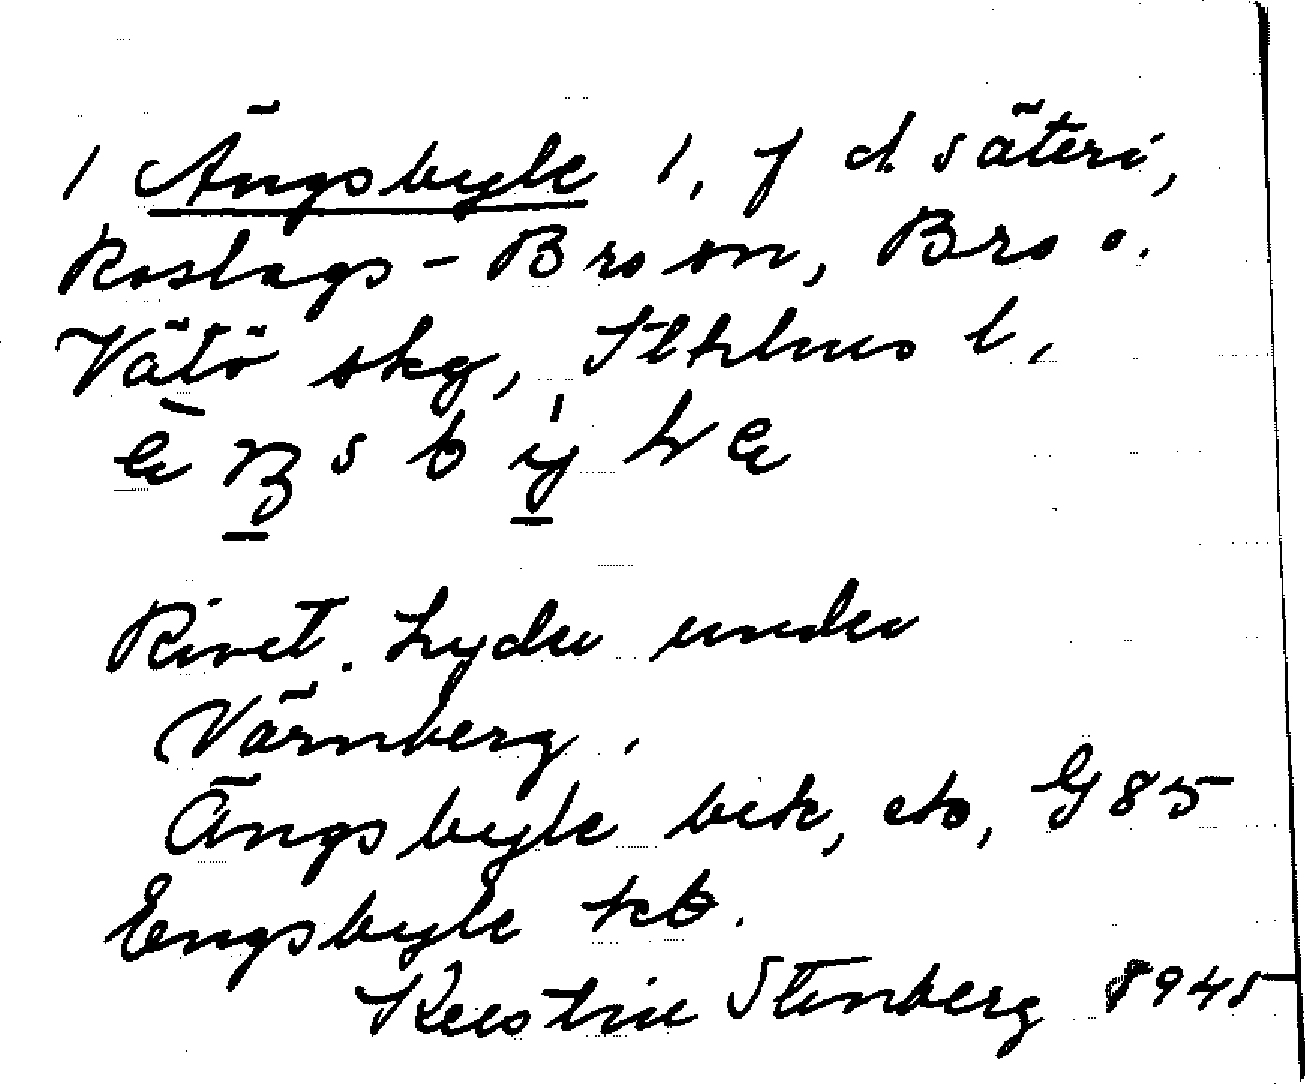 1 Ängsbyle 1, f d säteri,
Roslags-Bro sn, Bro o.
Vätö skg, Sthlms l.
Rivet. Lyder under
Värnberg.
Ängsbyle bek, eko, G 85
Engsbyle kb.
Kerstin Stenberg 1945